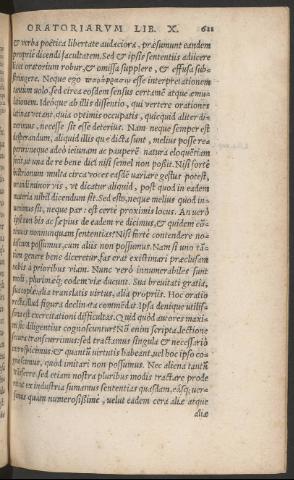 ORATORIARVM LIB. X. 621
& verba poëtica libertate audaciora, præsumunt eandem
propriè dicendi facultatem. Sed & ipsis sententiis adiicere
licet oratorium robur, & omissa supplere, & effusa sub-
stringere. Neque ego esse interpretationem
tantum volo. sed circa eosdem sensus certamē atque æmu-
lationem. Ideóque ab illis dissentio, qui vertere orationes
Latinas vetant. quia optimis occupatis, quicquid aliter di-
xerimus, necesse sit esse deterius. Nam neque semper est
desperandum, aliquid illis quæ dicta sunt, melius posse re-
neque adeò ieiunam ac pauperē natura eloquētiam
fecit, vt vna de re bene dici nisi semel non poßit. Nisi fortè
histrionum multa circa voces easdē variare gestus potest,
orandi minor vis, vt dicatur aliquid, post quod in eadem
materia nihil dicendum sit. Sed esto, neque melius quod in-
uenimus sit, neque par: est certè proximis locus. An verò
ipsi non bis ac sæpius de eadem re dicimus, & quidem cō-
tinuas nonnunquam sententias? Nisi fortè contendere no-
biscum possumus, cum aliis non possumus. Nam si vno tā-
tum genere bene diceretur, fas erat existimari præclusam
nobis à prioribus viam. Nunc verò innumerabiles sunt
modi, plurimæq́; eodem viæ ducunt. Sua breuitati gratia,
sua copiæ. alia translatis virtus, alia propriis. Hoc oratio
recta, illud figura declinata commēdat. Ipsa denique vtilißi-
ma est exercitationi difficultas. Quid quòd auctores maxi-
mi sic diligentius cognoscuntur? Nō enim scripta lectione
secura transcurrimus: sed tractamus singula & necessariò
introspicimus: & quantū virtutis habeant, vel hoc ipso co-
gnoscimus, quòd imitari non possumus. Nec aliena tantū
transferre. sed etiam nostra pluribus modis tractare prode-
rit: vt ex industria sumamus sententias quasdam, eásq́; ver-
semus quàm numerosißimè, velut eadem cera aliæ atque
aliæ